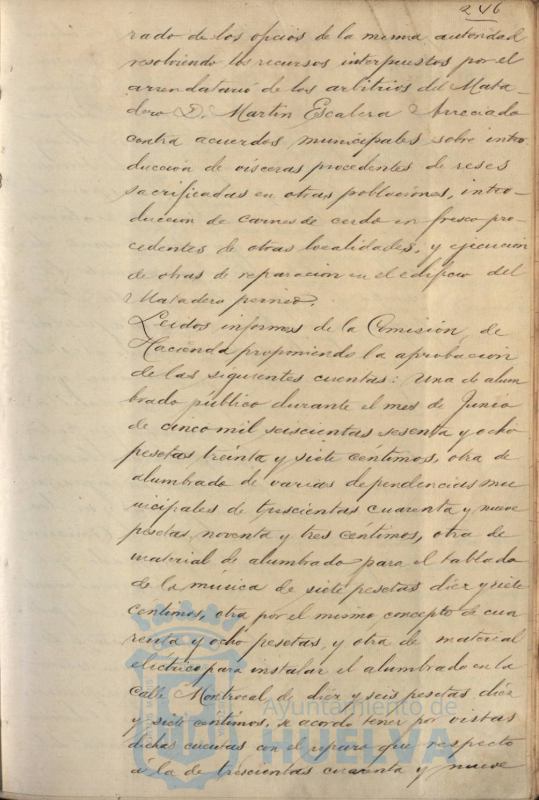 246
rado de los oficios de la misma autoridad
resolviendo los recursos interpuestos por el
arrendatario de los arbitrios del Mata-
dero D. Martin Escalera
contra acuerdos municipales sobre intro-
duccion de visceras procedentes de reses
sacrificadas en otras poblaciones, intro-
duccion de carnes de cerdo en fresco pro-
cedentes de otras localidades, y ejecucion
de obras de reparacion en el edificio del
Matadero
Leidos informes de la Comisión de
Hacienda proponiendo la aprobacion
de las siguientes cuentas: Una de alum
brado público durante el mes de Junio
de cinco mil seiscientas sesenta y ocho
pesetas treinta y siete céntimos, otra de
alumbrado de varias dependencias mu
nicipales de trescientas cuarenta y nueve
pesetas noventa y tres céntimos, otra de
material de alumbrado para el tablado
de la música de siete pesetas diez y siete
céntimos, otra por el mismo concepto de cua
renta y ocho pesetas, y otra de material
eléctrico para instalar el alumbrado en la
calle Montrocal de diez y seis pesetas diez
y siete céntimos, se acordo tener por vistas
dichas cuentas con el reparo que respecto
á la de trescientas cuarenta y nueve
Ayuntamiento de
HUELVA